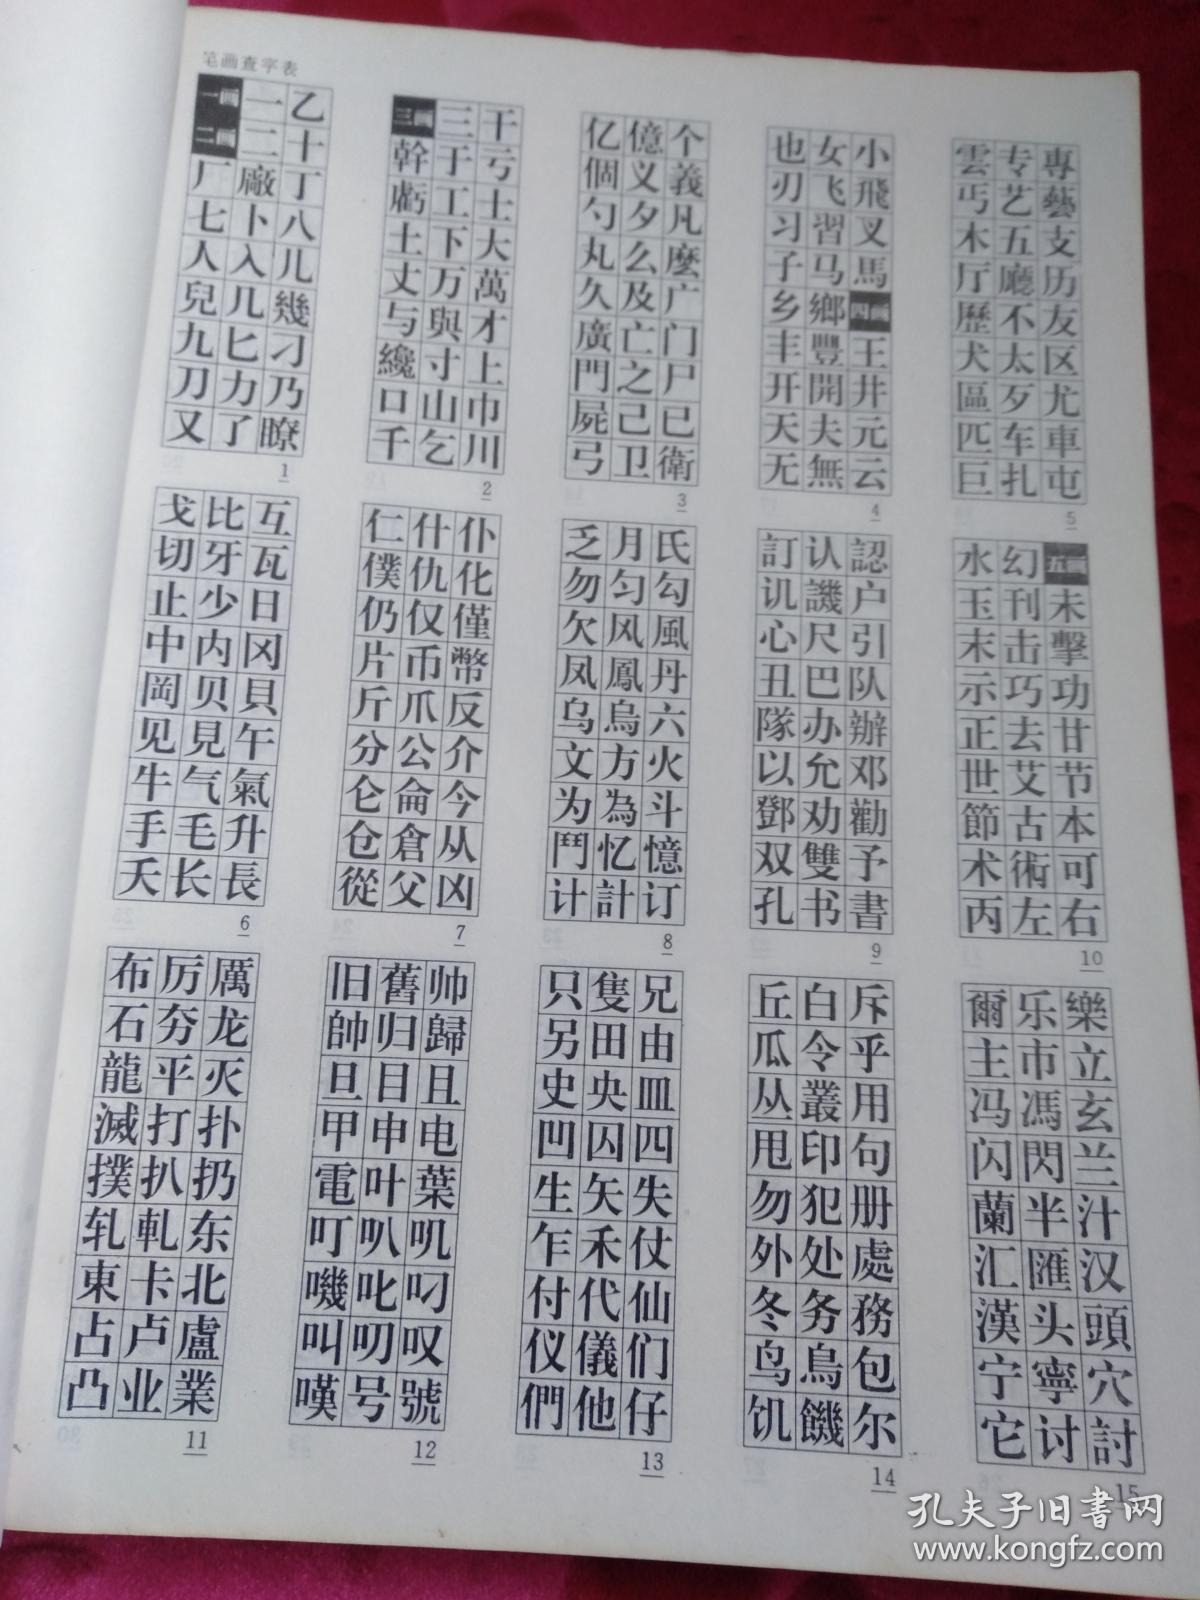 笔画查字表
一画 一 乙
二画 二 十
厂 廠 丁
七 卜 八
人 入 儿
兒 几 幾
九 匕 刁
刀 力 乃
又 了 瞭
1
三画 三 干
幹 于 亏
虧 工 士
土 下 大
丈 万 萬
与 與 才
纔 寸 上
口 山 巾
千 乞 川
2
亿 億 个
個 义 義
勺 夕 凡
丸 么 麼
久 及 广
廣 亡 门
門 之 尸
屍 己 已
弓 卫 衛
3
也 女 小
刃 飞 飛
习 習 叉
子 马 馬
乡 鄉 四画
丰 豐 王
开 開 井
天 夫 元
无 無 云
4
雲 专 専
丐 艺 藝
木 五 支
厅 廳 历
歷 不 友
犬 太 区
區 歹 尤
匹 车 車
巨 扎 屯
5
戈 比 互
切 牙 瓦
止 少 日
中 内 冈
岡 贝 貝
见 見 午
牛 气 氣
手 毛 升
夭 长 長
6
仁 什 仆
僕 仇 化
仍 仅 僅
片 币 幣
斤 爪 反
分 公 介
仑 侖 今
仓 倉 从
從 父 凶
7
乏 月 氏
勿 匀 勾
欠 风 風
凤 鳳 丹
乌 烏 六
文 方 火
为 為 斗
鬥 忆 憶
计 計 订
8
訂 认 認
讥 譏 户
心 尺 引
丑 巴 队
隊 办 辦
以 允 邓
鄧 劝 勸
双 雙 予
孔 书 書
9
水 幻 五画
玉 刊 未
末 击 擊
示 巧 功
正 去 甘
世 艾 节
節 古 本
术 術 可
丙 左 右
10
布 厉 厲
石 夯 龙
龍 平 灭
滅 打 扑
撲 扒 扔
轧 軋 东
東 卡 北
占 卢 盧
凸 业 業
11
旧 舊 帅
帥 归 歸
旦 目 且
甲 申 电
電 叶 葉
叮 叭 叽
嘰 叱 叼
叫 叨 叹
嘆 号 號
12
只 隻 兄
另 田 由
史 央 皿
凹 囚 四
生 矢 失
乍 禾 仗
付 代 仙
仪 儀 们
們 他 仔
13
丘 白 斥
瓜 令 乎
丛 叢 用
甩 印 句
勿 犯 册
外 处 處
冬 务 務
鸟 鳥 包
饥 饑 尔
14
爾 乐 樂
主 市 立
冯 馮 玄
闪 閃 兰
蘭 半 汁
汇 匯 汉
漢 头 頭
宁 寧 穴
它 讨 討
15
孔夫子旧书网
www.kongfz.com